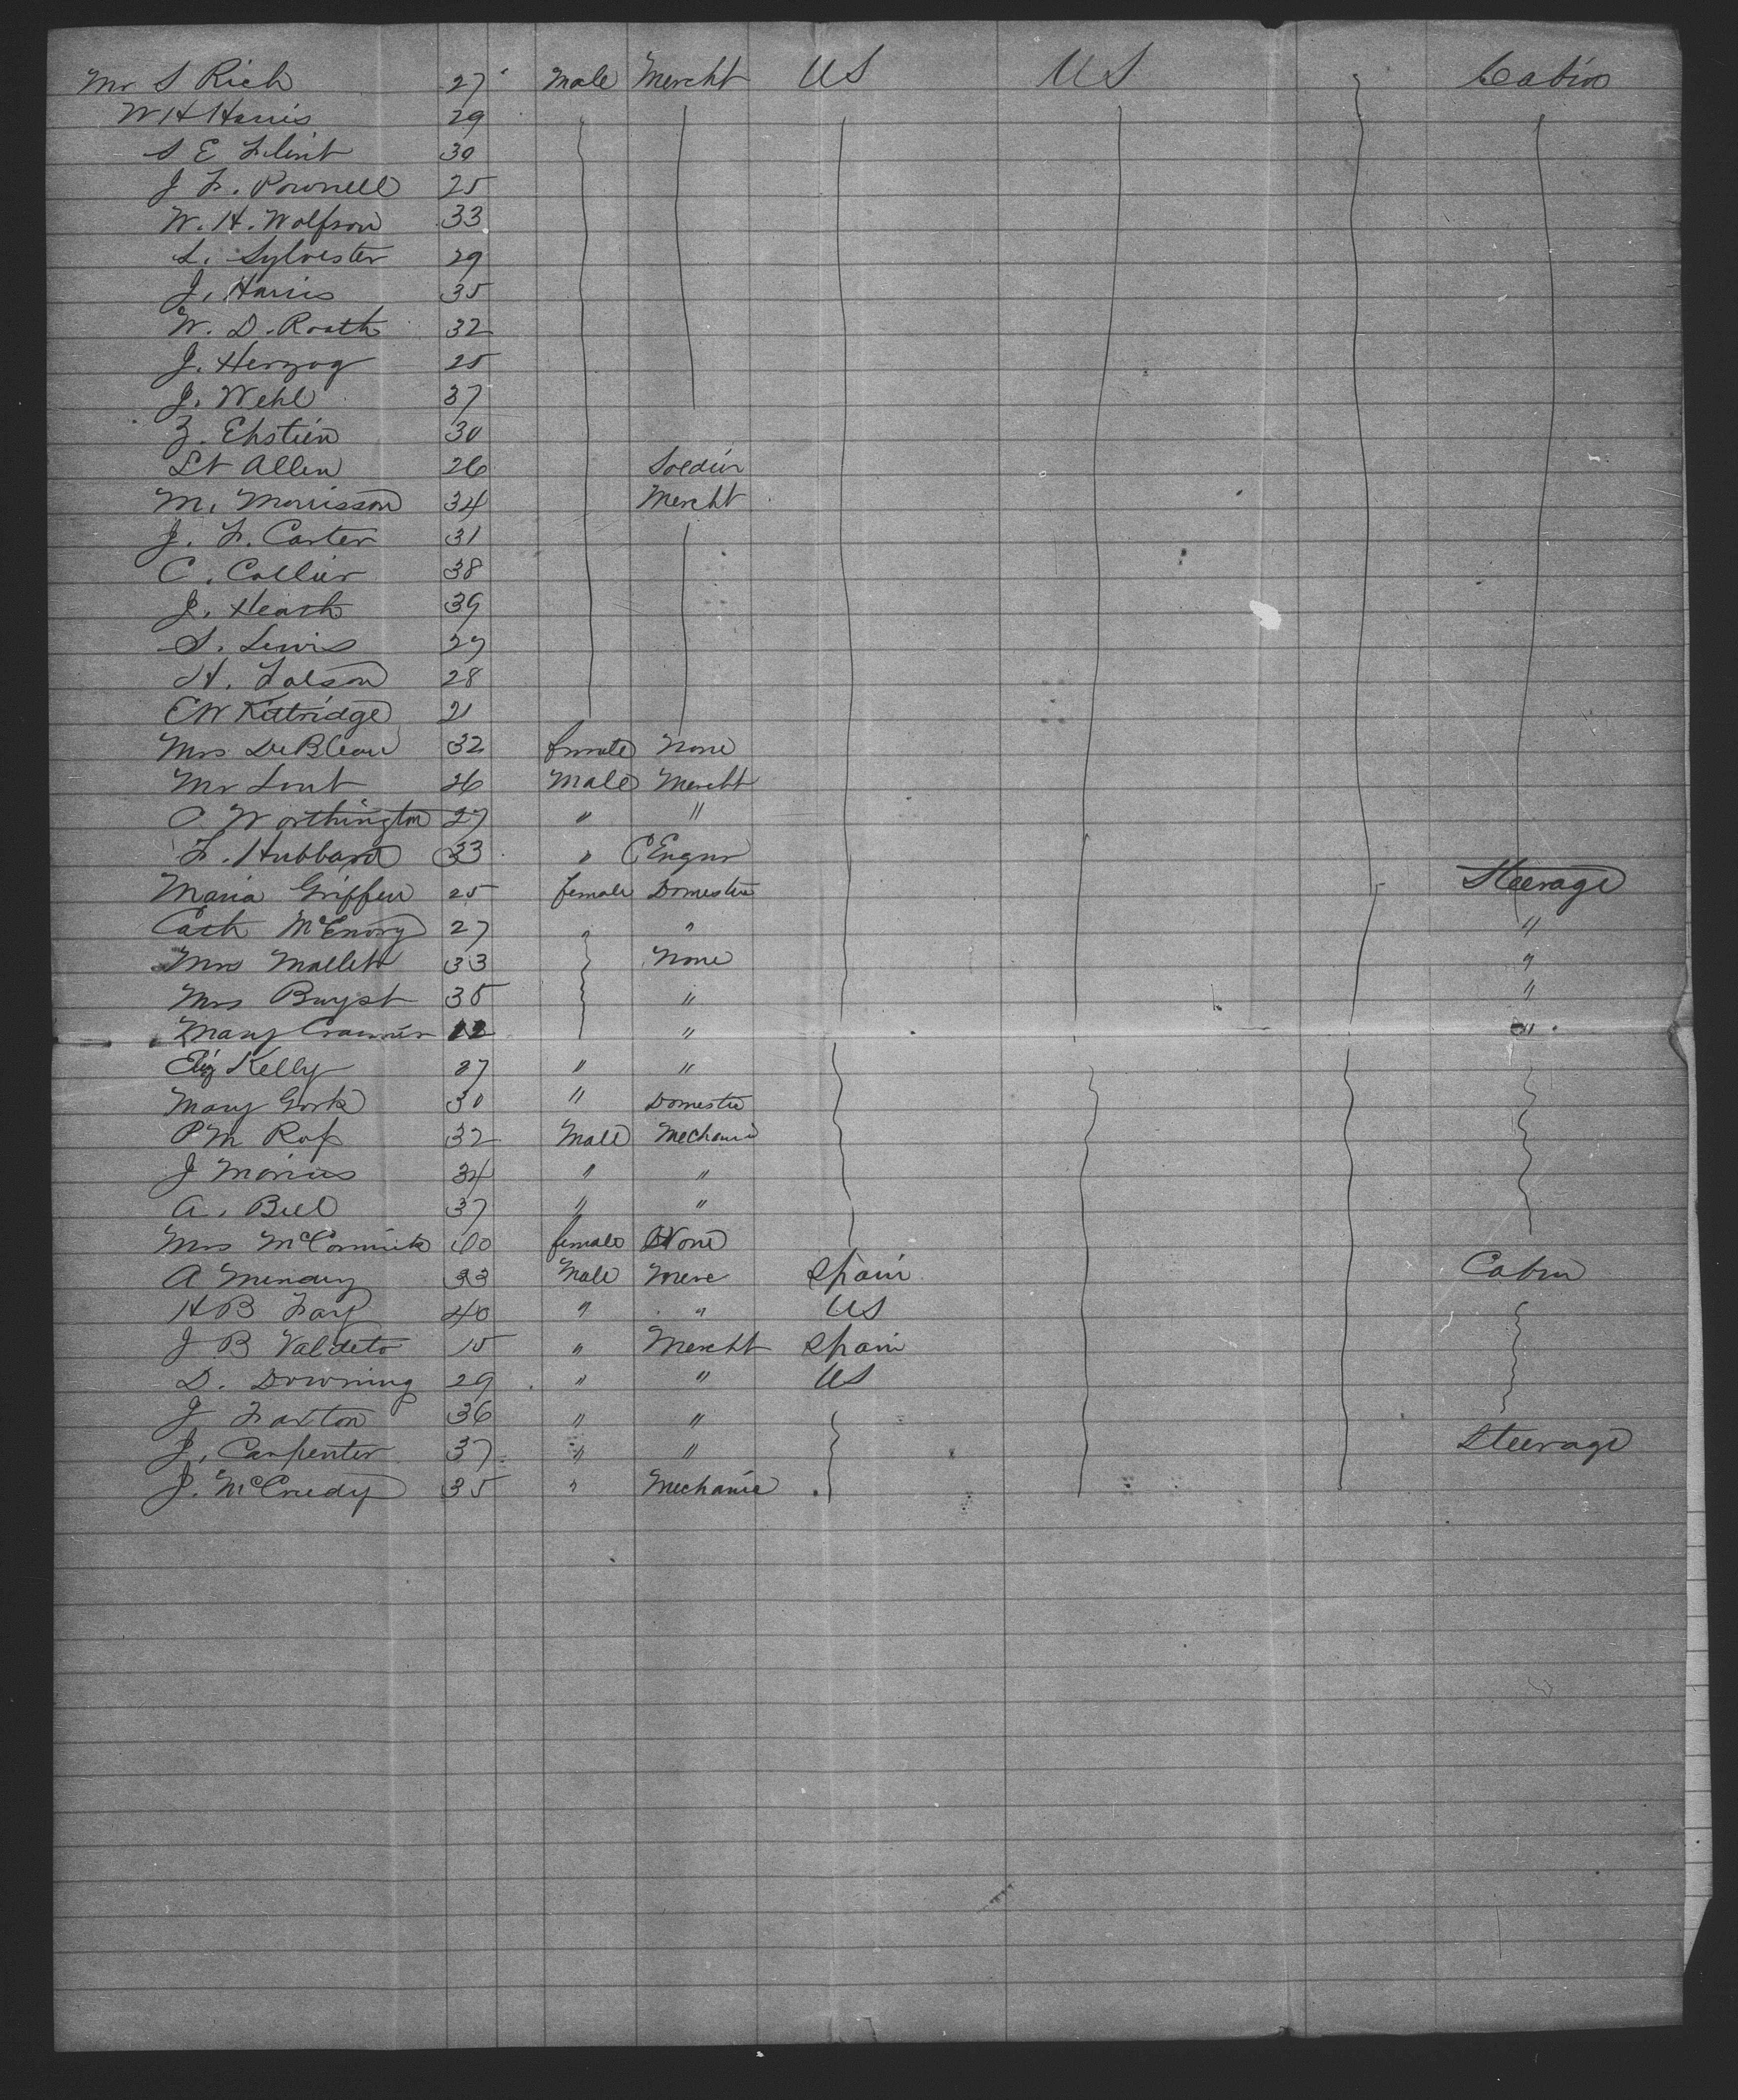 Mr S Rich 27 Male Mercht US US Cabin
W H Harris 29
S E Flint 30
J F. Pownell 25
W. H. Wolfson 33
L. Sylvester 29
J. Harris 35
W. D. Roath 32
J. Herzog 25
J. Wehl 37
Z. Ehstien 30
Lt Allen 26 Soldier
M. Morrisson 34 Mercht
J. F. Carter 31
C. Collier 38
J. Heath 39
S. Lewis 27
H. Folsom 28
E W Kittridge 21
Mrs DeBlean 32 female None
Mr Lout 26 Male Mercht
C. Worthington 27 " "
F. Hubbard 33 " C Engnr
Maria Griffen 25 female Domestic Steerage
Cath McEnory 27 " " "
Mrs Mallett 33 None "
Mrs Buyst 35 " "
Mary Cranner " "
Eliz Kelly 37 " "
Mary Gork 30 " Domestic
P M Rofs 32 Male Mechanic
J Morius 34 " "
A. Bell 37 " "
Mrs McCormick 40 female None
A Mendez 33 Male Merc Spain Cabin
H B Fay 40 " " US
J B Valdeto 15 " Mercht Spain
D. Downing 29 " " US
J Faxton 36 " "
J. Carpenter 37 " " Steerage
J. McCredy 35 " Mechanic